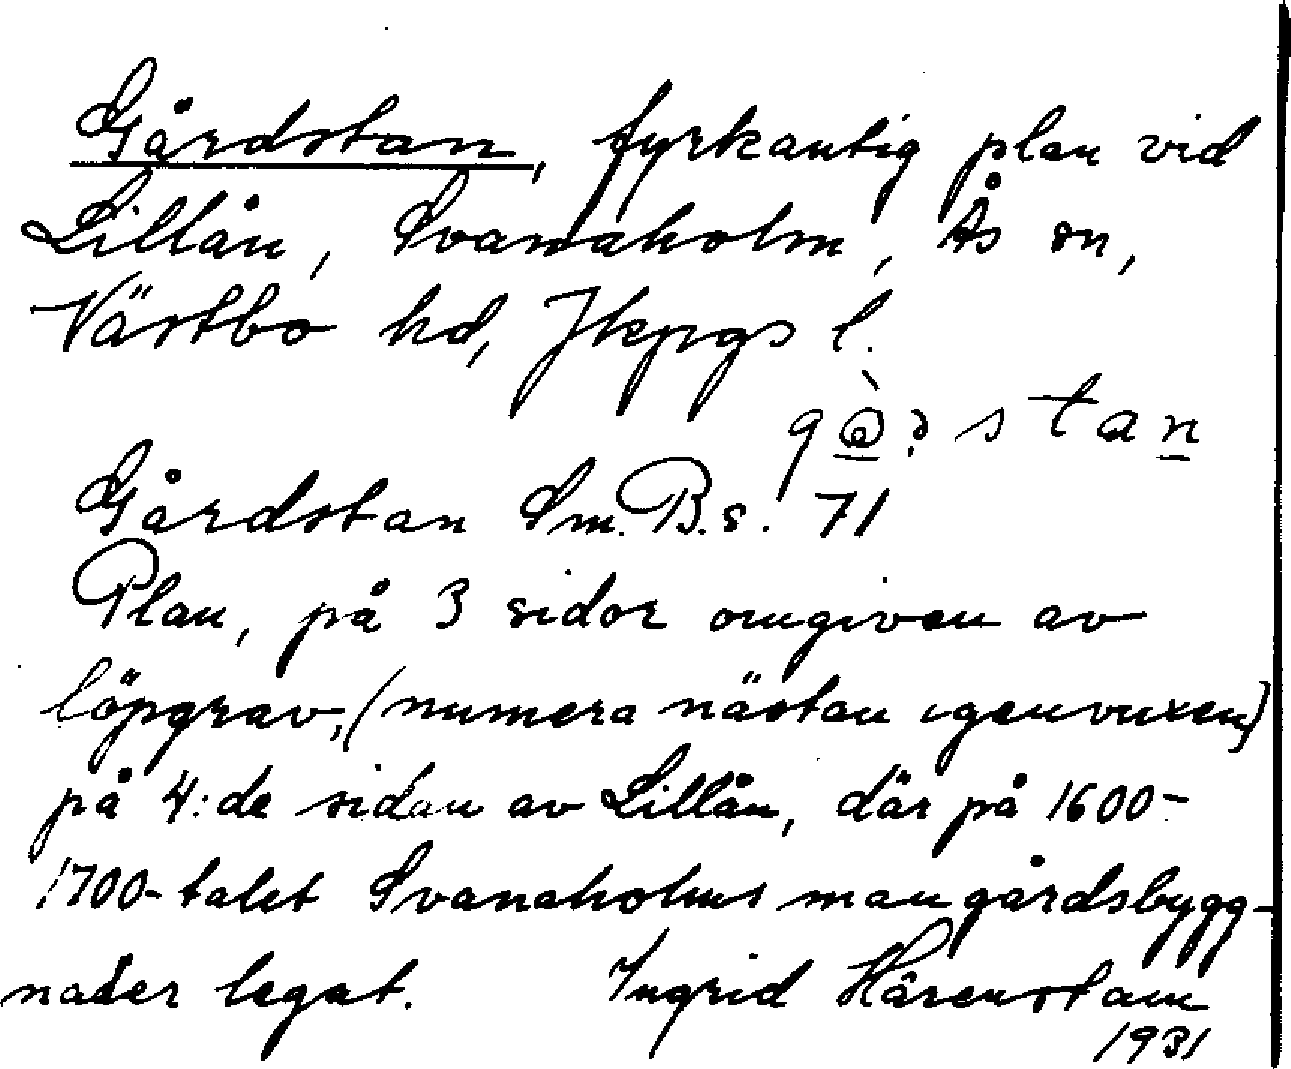 Gårdstan, fyrkantig plan vid
Lillån, Svanaholm, Ås sn,
Västbo hd, Jkpgs l.
Gårdstan Sm. B. s. 71
Plan, på 3 sidor omgiven av
löpgrav, (numera nästan igenvuxen)
på 4:de sidan av Lillån, där på 1600-
1700-talet Svanaholms mangårdsbygg-
nader legat. Ingrid Härenstam
1931